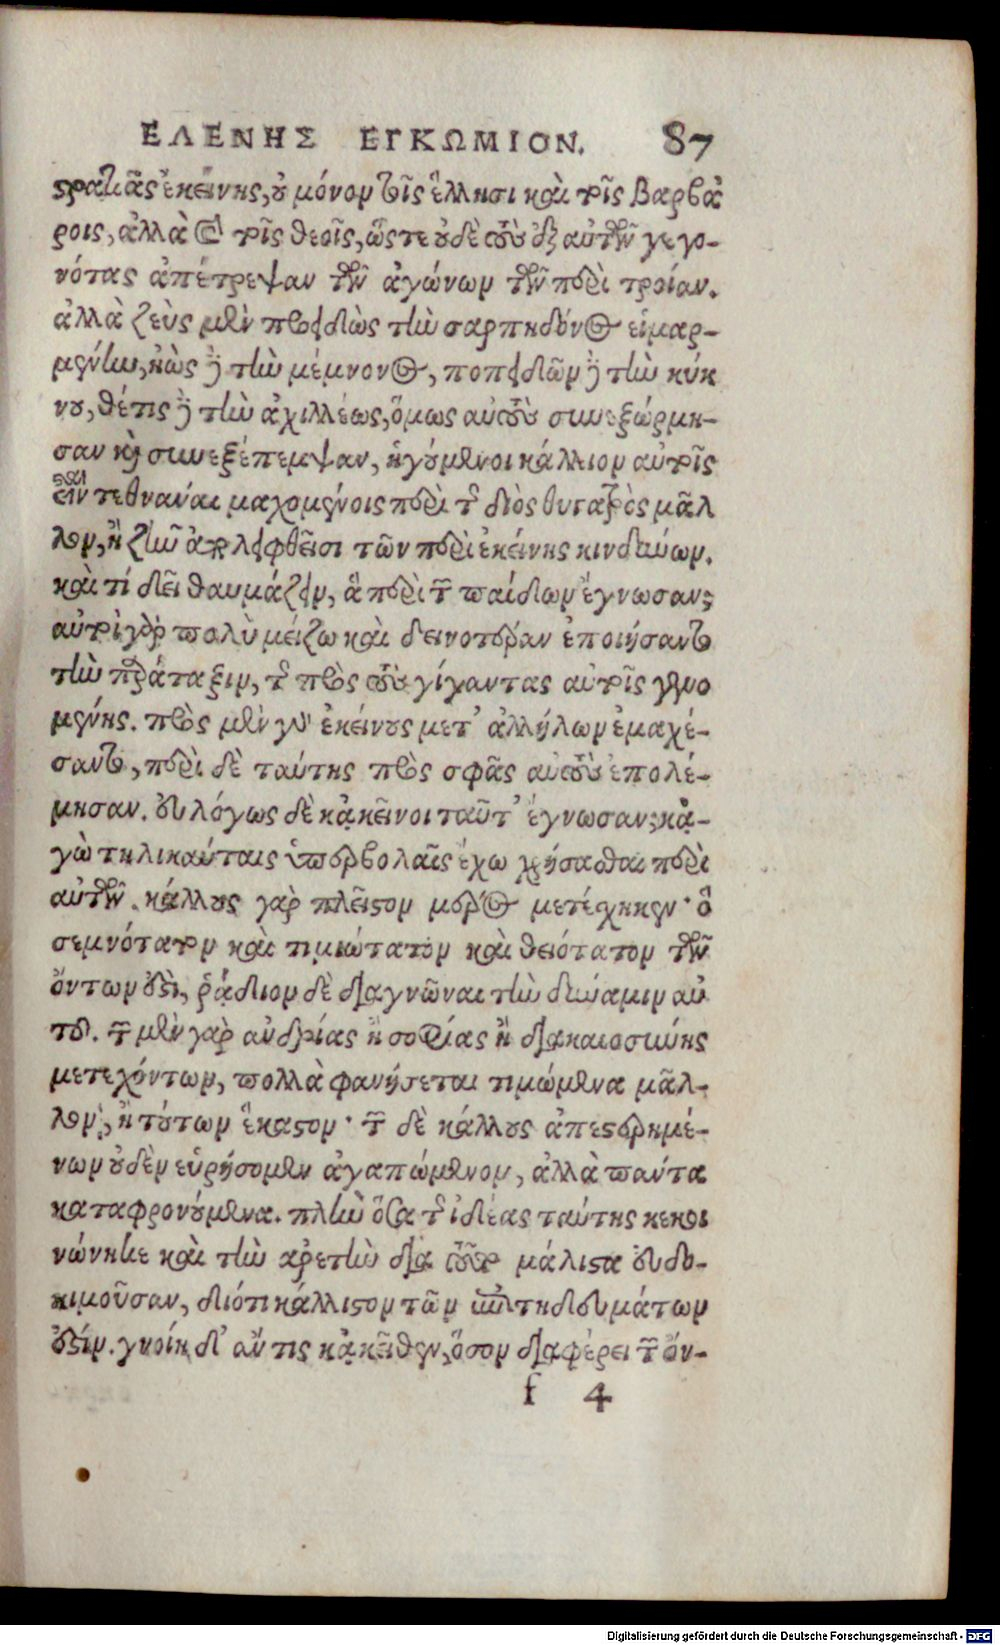 ΕΛΕΝΗΣ ΕΓΚΩΜΙΟΝ. 87
στρατιᾶς ἐκείνης, οὐ μόνον τοῖς ἕλλησι καὶ τοῖς βαρβά
ροις, ἀλλὰ καὶ τοῖς θεοῖς, ὥςτε οὐδὲ τοὺς ἐξ αὐτῶν γεγο-
νότας ἀπέτρεψαν τῶν ἀγώνων τῶν περὶ τροίαν.
ἀλλὰ ζεὺς μὲν προειδὼς τὴν σαρπηδόνος εἱμαρ-
μένην, ἠὼς δὲ τὴν μέμνονος, ποσειδῶν δὲ τὴν κύκ
νου, θέτις δὲ τὴν ἀχιλλέως, ὅμως αὐτοὺς συνεξώρμη-
σαν καὶ συνεξέπεμψαν, ἡγούμενοι κάλλιον αὐτοῖς
εἶναι τεθνάναι μαχομένοις περὶ τῆς διὸς θυγατρὸς μᾶλ
λον, ἢ ζῆν ἀπολειφθεῖσι τῶν περὶ ἐκείνης κινδύνων.
καὶ τί δεῖ θαυμάζειν, ἃ περὶ τῶν παίδων ἔγνωσαν;
αὐτοὶ γὰρ πολὺ μείζω καὶ δεινοτέραν ἐποιήσαντο
τὴν παράταξιν, τῆς πρὸς τοὺς γίγαντας αὐτοῖς γενο
μένης. πρὸς μὲν γὰρ ἐκείνους μετ' ἀλλήλων ἐμαχέ-
σαντο, περὶ δὲ ταύτης πρὸς σφᾶς αὐτοὺς ἐπολέ-
μησαν. εὐλόγως δὲ κἀκεῖνοι ταῦτ' ἔγνωσαν; κἀ-
γὼ τηλικαύταις ὑπερβολαῖς ἔχω χρήσασθαι περὶ
αὐτῶν. κάλλους γὰρ πλεῖστον μέρος μετέσχηκεν· ὃ
σεμνότατον καὶ τιμιώτατον καὶ θειότατον τῶν
ὄντων ἐστὶ, ῥάδιον δὲ διαγνῶναι τὴν δύναμιν αὐ
τοῦ. τῶν μὲν γὰρ ἀνδρίας ἢ σοφίας ἢ διακαιοσύνης
μετεχόντων, πολλὰ φανήσεται τιμώμενα μᾶλ-
λον, ἢ τούτων ἕκαστον· τῶν δὲ κάλλους ἀπεστερημέ-
νων οὐδὲν εὑρήσομεν ἀγαπώμενον, ἀλλὰ πάντα
καταφρονούμενα. πλὴν ὅσα τῆς ἰδέας ταύτης κεκοι
νώνηκε καὶ τὴν ἀρετὴν διὰ τοῦτο μάλιστα εὐδο-
κιμοῦσαν, διότι κάλλιστον τῶν ἐπιτηδευμάτων
ἐστίν. γνοίη δ' ἄν τις κἀκεῖθεν, ὅσον διαφέρει τῶν ὄν-
f 4
Digitalisierung gefördert durch die Deutsche Forschungsgemeinschaft - DFG